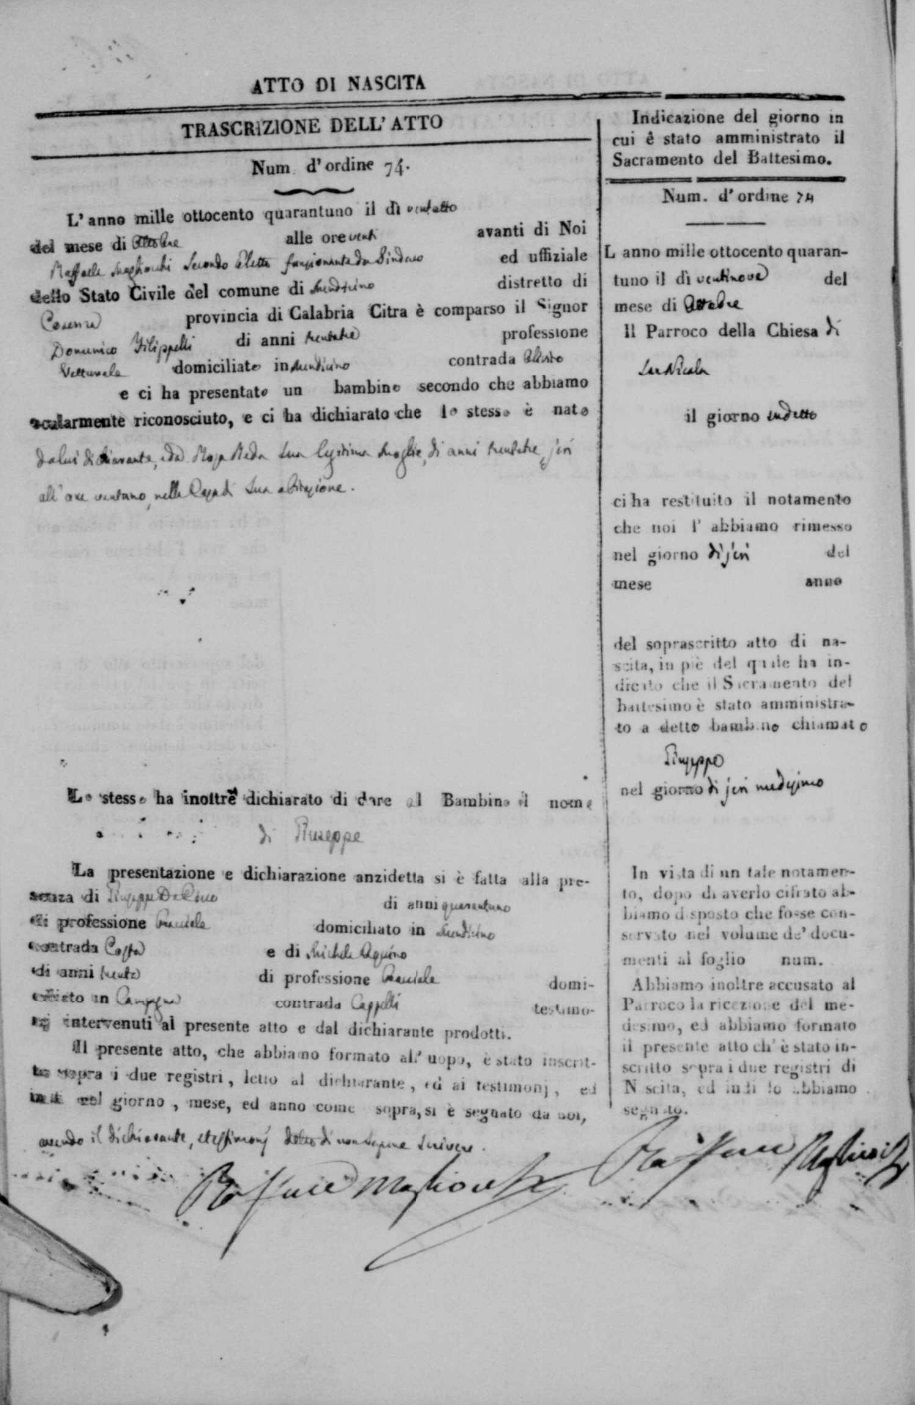 ATTO DI NASCITA
TRASCRIZIONE DELL' ATTO
Num. d' ordine 74.
L' anno mille ottocento quarantuno il dì ventotto
del mese di Ottobre alle ore venti avanti di Noi
Raffaele Secondo Eletto funzionante da Sindaco ed uffiziale
dello Stato Civile del comune di distretto di
Cosenza provincia di Calabria Citra è comparso il Signor
Domenico Filippelli di anni trentatre professione
Vetturale domiciliato in contrada
e ci ha presentato un bambino secondo che abbiamo
ocularmente riconosciuto, e ci ha dichiarato che lo stesso è nato
da lui dichiarante, e da Rosa sua legitima moglie, di anni trentatre, jeri
all' ore ventuno, nella Casa di sua abitazione.
Lo stesso ha inoltre dichiarato di dare al Bambino il nome
di Giuseppe
La presentazione e dichiarazione anzidetta si è fatta alla pre-
senza di Giuseppe De di anni quarantuno
di professione domiciliato in
contrada Costa e di Michele Aquino
di anni trenta di professione domi-
ciliato in Campagna contrada Cappelli testimo-
nj intervenuti al presente atto e dal dichiarante prodotti.
Il presente atto, che abbiamo formato all' uopo, è stato inscrit-
to sopra i due registri, letto al dichiarante, ed ai testimonj, ed
indi nel giorno, mese, ed anno come sopra, si è segnato da noi,
avendo il dichiarante, e testimonj detto di non sapere scrivere.
Raffaele
Indicazione del giorno in
cui è stato amministrato il
Sacramento del Battesimo.
Num. d' ordine 74
L anno mille ottocento quaran-
tuno il dì ventinove del
mese di Ottobre
Il Parroco della Chiesa di
San Nicola
il giorno indetto
ci ha restituito il notamento
che noi l' abbiamo rimesso
nel giorno di jeri del
mese anno
del soprascritto atto di na-
scita, in piè del quale ha in-
dicato che il Sacramento del
battesimo è stato amministra-
to a detto bambino chiamato
Giuseppe
nel giorno di jeri medesimo
In vista di un tale notamen-
to, dopo di averlo cifrato ab-
biamo disposto che fosse con-
servato nel volume de' docu-
menti al foglio num.
Abbiamo inoltre accusato al
Parroco la ricezione del me-
desimo, ed abbiamo formato
il presente atto ch' è stato in-
scritto sopra i due registri di
Nascita, ed indi lo abbiamo
segnato.
Raffaele